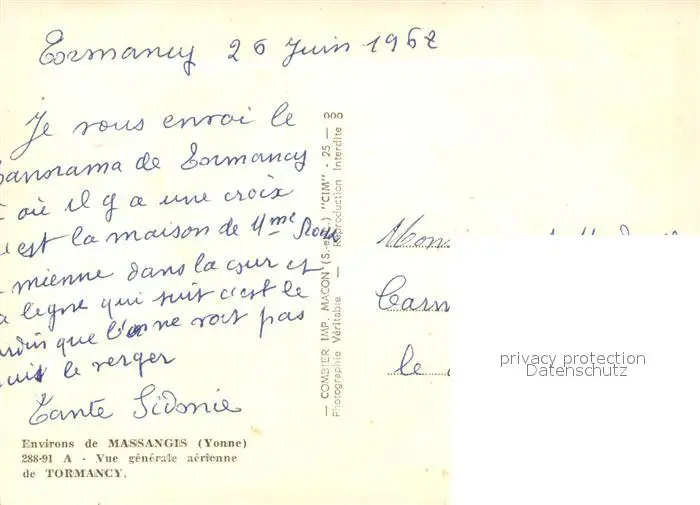 Tormancy 26 Juin 1962
Je vous envoi le
panorama de Tormancy
où il y a une croix
est la maison de Mme
mienne dans la cour et
la ligne qui suit c'est le
jardin que l'on ne voit pas
puis le verger
Tante Sidonie
Environs de MASSANGIS (Yonne)
288-91 A - Vue générale aérienne
de TORMANCY.
— COMBIER IMP. MACON (S.-et-L.) "CIM" - 25 — 000
Photographie Véritable — Reproduction Interdite
le
privacy protection
Datenschutz